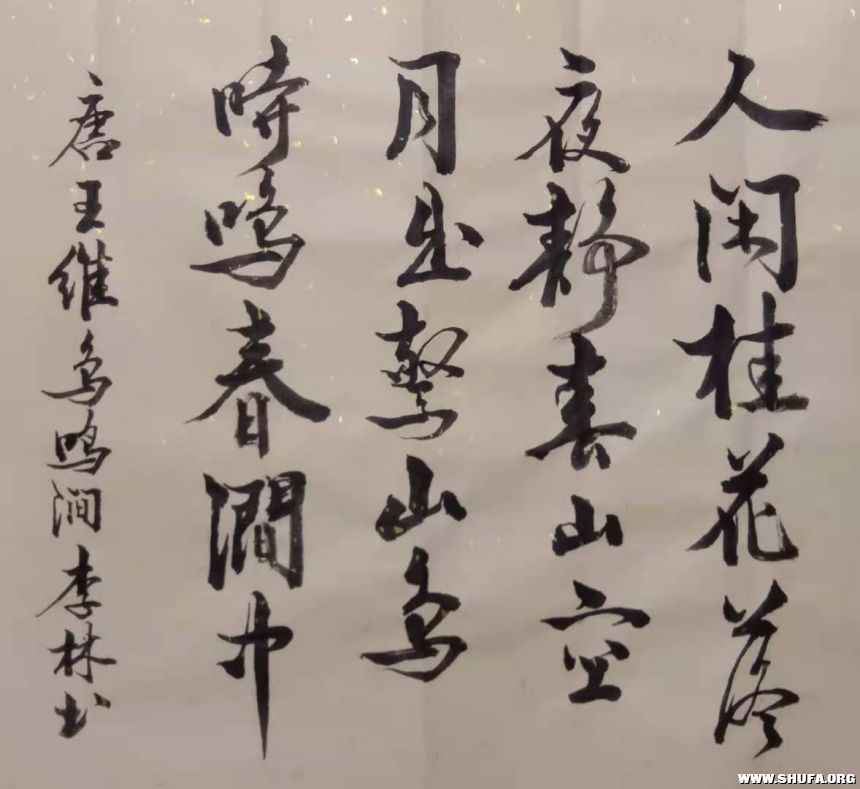 人闲桂花落
夜静春山空
月出驚山鸟
時鳴春澗中
唐王维鸟鸣涧李林书
WWW.SHUFA.ORG